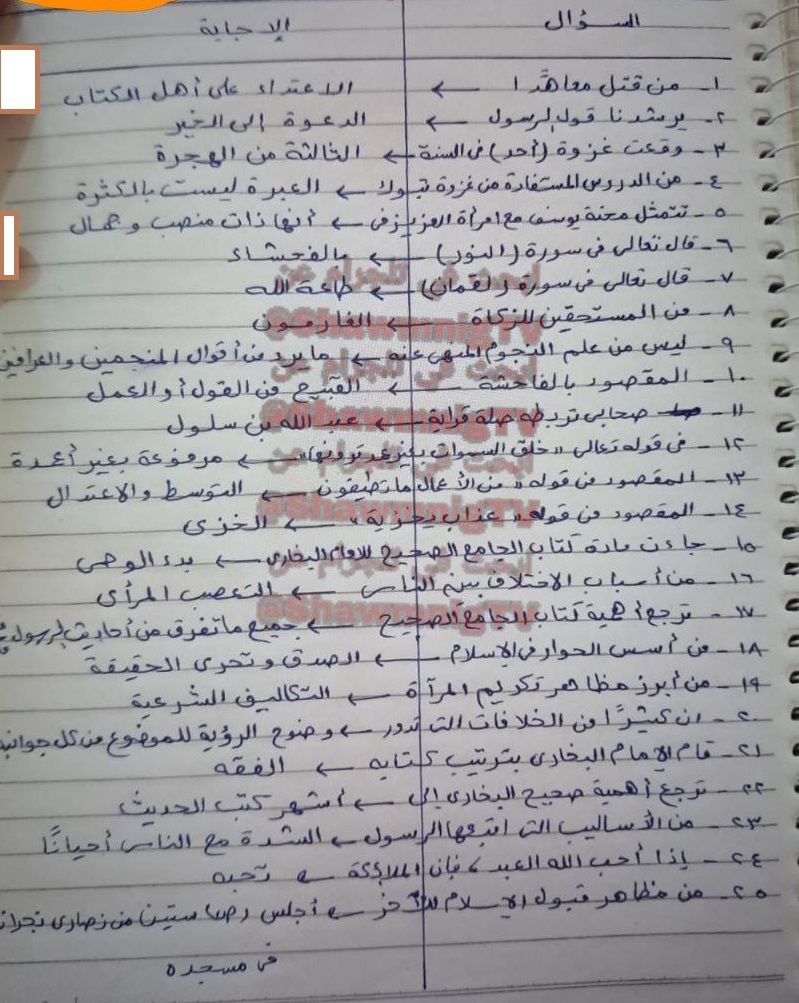 السؤال الإجابة
١- من قتل معاهدًا ← الاعتداء على أهل الكتاب
٢- يرشدنا قول الرسول ← الدعوة إلى الخير
٣- وقعت غزوة (أحد) في السنة ← الثالثة من الهجرة
٤- من الدروس المستفادة من غزوة تبوك ← العبرة ليست بالكثرة
٥- تتمثل محنة يوسف مع امرأة العزيز في ← أنها ذات منصب وجمال
٦- قال تعالى في سورة (النور) ← بالفحشاء
٧- قال تعالى في سورة (لقمان) ← طاعة الله
٨- من المستحقين للزكاة ← الغارمون
٩- ليس من علم النجوم المنهي عنه ← ما يرد من أقوال المنجمين والعرافين
١٠- المقصود بالفاحشة ← القبيح من القول أو العمل
١١- صحابي تربطه صلة قرابة ← عبد الله بن سلول
١٢- في قوله تعالى "خلق السموات بغير عمد ترونها" ← مرفوعة بغير أعمدة
١٣- المقصود من قوله "من الأعمال ما تطيقون" ← التوسط والاعتدال
١٤- المقصود من قوله "عذاب يخزيه" ← الخزى
١٥- جاءت مادة كتاب الجامع الصحيح للامام البخارى ← بدء الوحى
١٦- من أسباب الاختلاف بين الناس ← التعصب المرأى
١٧- ترجع أهمية كتاب الجامع الصحيح ← جميع ما تفرق من أحاديث الرسول
١٨- من أسس الحوار في الإسلام ← الصدق وتحرى الحقيقة
١٩- من أبرز مظاهر تكريم المرآة ← التكاليف الشرعية
٢٠- ان كثيرًا من الخلافات التى تدور ← وضوح الرؤية للموضوع من كل جوانبه
٢١- قام الإمام البخارى بترتيب كتابه ← الفقه
٢٢- ترجع أهمية صحيح البخارى إلى ← أشهر كتب الحديث
٢٣- من الأساليب التى اتبعها الرسول ← الشدة مع الناس أحيانًا
٢٤- إذا أحب الله العبد، فإن الملائكة ← تحبه
٢٥- من مظاهر قبول الإسلام للآخر ← أجلس ستين من نصارى نجران
في مسجده
ابحث في تلجرام عن
@ShawmnigTV
ابحث في تلجرام عن
@ShawmnigTV
ابحث في تلجرام عن
@ShawmnigTV
ابحث في تلجرام عن
@ShawmnigTV